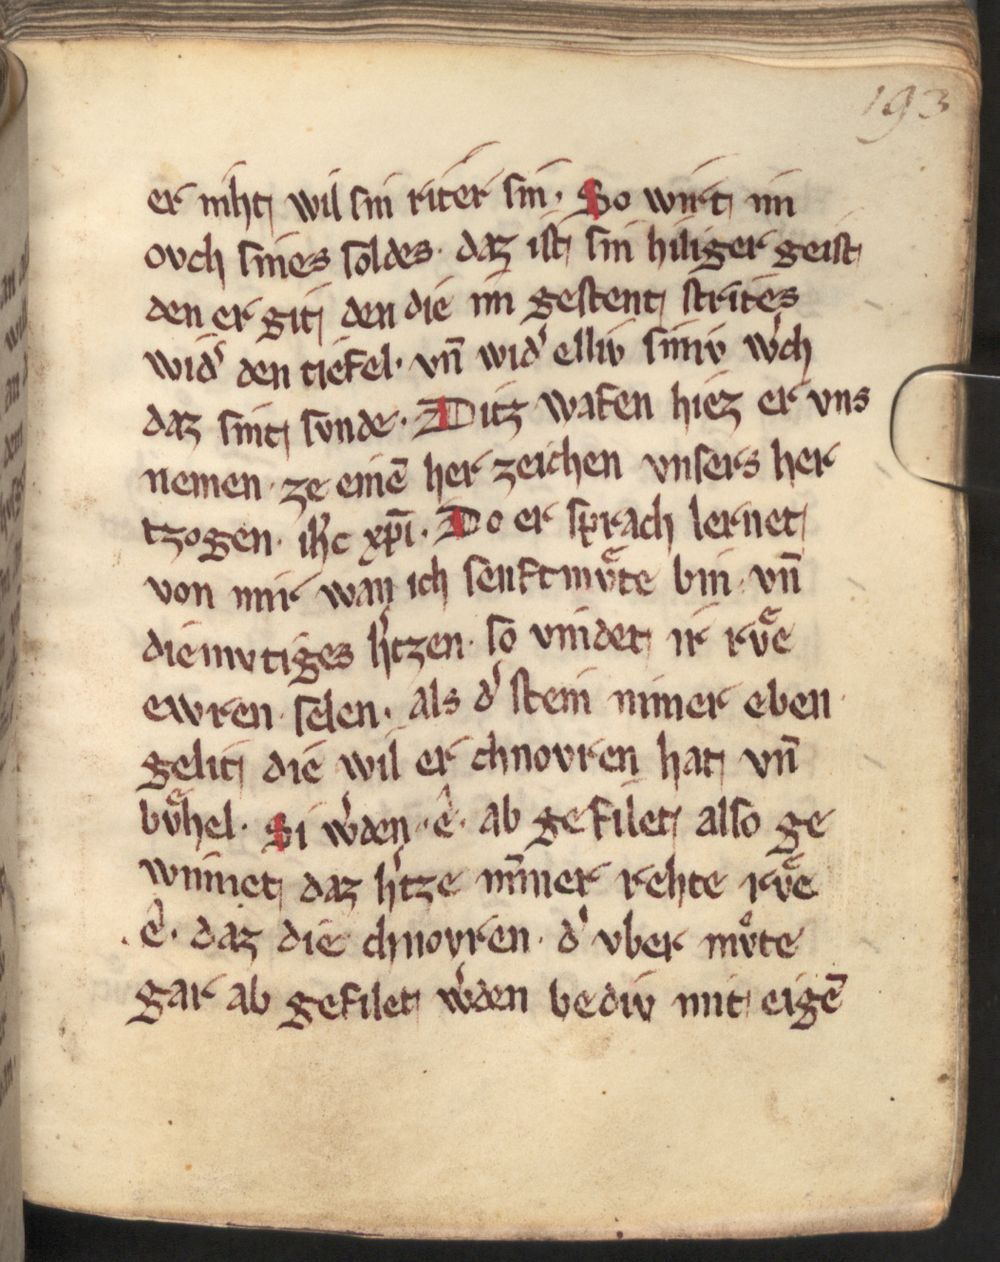 193
er niht wil sin riter sin· So wirt im
ovch sines soldes· daz ist sin hiliger geist
den er git den die im gestent strites
wid᾽ den tiefel· vn̄ wid᾽ elliv siniv w᾽ch
daz sint svnde· Ditz wafen hiez er vns
nemen· ze einē her zeichen vnsers her
tzogen· ih᾽c xp̄i· Do er sprach lernet
von mir wan ich senftmvͤte bin· vn̄
diemvtiges h᾽tzen· so vindet ir rvͤe
ewren selen· als d᾽ stein nimer eben
gelit die wil er chnovren hat vn̄
bvͤhel· Si w᾽den· ê· ab gefilet also ge
winnet daz h᾽tze nīmer rehte rvͤe
ê· daz die chnovren· d᾽ vber mvͦte
gar ab gefilet w᾽den bediv mit eigē